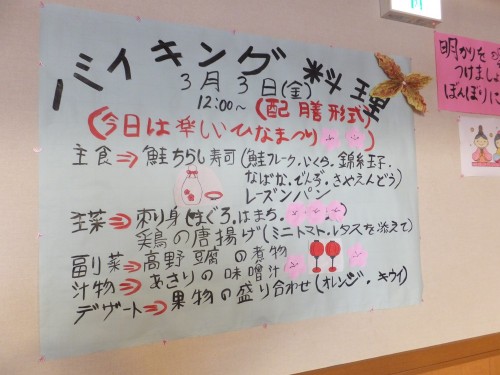 バイキング料理
3月3日(金)
12:00~(配膳形式)
(今日は楽しいひなまつり
主食⇒鮭ちらし寿司(鮭フレーク.いくら.錦糸玉子.
なばな.でんぶ.さやえんどう)
レーズンパン
主菜⇒刺り身(まぐろ.はまち.
鶏の唐揚げ(ミニトマト.レタスを添えて)
副菜⇒高野豆腐の煮物
汁物⇒あさりの味噌汁
デザート⇒果物の盛り合わせ(オレンジ.キウイ)
明かりを
つけましょ
ぼんぼりに